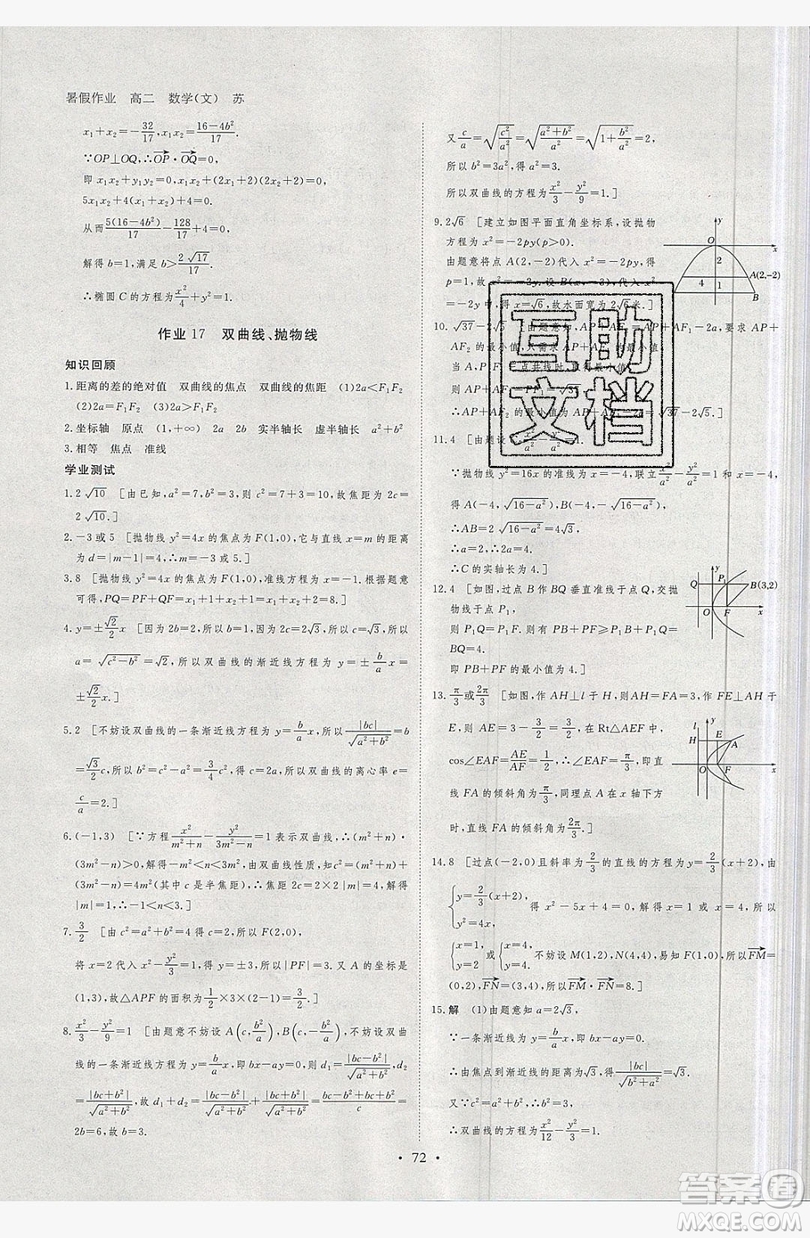 暑假作业 高二 数学(文) 苏
x₁+x₂=-32/17,x₁x₂=(16-4b²)/17.
∵OP⊥OQ,∴OP·OQ=0,
即x₁x₂+y₁y₂=0,x₁x₂+(2x₁+2)(2x₂+2)=0,
5x₁x₂+4(x₁+x₂)+4=0.
从而5(16-4b²)/17-128/17+4=0,
解得b=1,满足b>2√17/17.
∴椭圆C的方程为x²/4+y²=1.
作业17 双曲线、抛物线
知识回顾
1.距离的差的绝对值 双曲线的焦点 双曲线的焦距 (1)2a<F₁F₂
(2)2a=F₁F₂ (3)2a>F₁F₂
2.坐标轴 原点 (1,+∞) 2a 实半轴长 虚半轴长 a²+b²
3.相等 焦点 准线
学业测试
1.2√10 [由已知,a²=7,b²=3,则c²=7+3=10,故焦距为2c=
2√10.]
2.-3或5 [抛物线y²=4x的焦点为F(1,0),它与直线x=m的距离
为d=|m-1|=4,∴m=-3或5.]
3.8 [抛物线y²=4x的焦点为F(1,0),准线为x=-1.根据题意
可得,PQ=PF+QF=x₁+1+x₂+1=x₁+x₂+2=8.]
4.y=±√2/2 x [因为2b=2,所以b=1,因为2c=2√3,所以c=√3,所以
a=√(c²-b²)=√2,所以双曲线的渐近线方程为y=±b/a x=
±√2/2 x.]
5.2 [不妨设双曲线的一条渐近线方程为y=b/a x,所以|bc|/√(a²+b²)=
b=√3/2 c,所以b²=c²-a²=3/4 c²,得c=2a,所以双曲线的离心率e=
c/a=2.]
6.(-1,3) [∵方程x²/(m²+n)-y²/(3m²-n)=1表示双曲线,∴(m²+n)·
(3m²-n)>0,解得-m²<n<3m²,由双曲线性质,知c²=(m²+n)+
(3m²-n)=4m²(其中c是半焦距),∴焦距2c=2×2|m|=4,解得
|m|=1,∴-1<n<3.]
7.3/2 [由c²=a²+b²=4得c=2,所以F(2,0),
将x=2代入x²-y²/3=1,得y=±3,所以|PF|=3.又A的坐标是
(1,3),故△APF的面积为1/2×3×(2-1)=3/2.]
8.x²/3-y²/9=1 [由题意不妨设A(c,b²/a),B(c,-b²/a),不妨设双曲
线的一条渐近线方程为bx-ay=0,则d₁=|bc-b²|/√(a²+b²),d₂=
|bc+b²|/√(a²+b²),故d₁+d₂=|bc-b²|/√(a²+b²)+|bc+b²|/√(a²+b²)=(bc-b²+bc+b²)/√(a²+b²)=
2b=6,故b=3.
又c/a=√(c²/a²)=√((a²+b²)/a²)=√(1+b²/a²)=2,
所以b²=3a²,得a²=3.
所以双曲线的方程为x²/3-y²/9=1.]
9.2√6 [建立如图平面直角坐标系,设抛物
方程为x²=-2py(p>0).
由题意将点A(2,-2)代入x²=-2py,
得p=1,故x²=-2y.设B(x,-3),代入
x²=-2y中,得x=√6,故水面宽为2√6米.]
O x 2 4 1 A(2,-2) B
10.√37-2√3
11.4
∵抛物线y²=16x的准线为x=-4,联立
得A(-4,√(16-a²)),B(-4,-√(16-a²)),
∴AB=2√(16-a²)=4√3,
∴a=2,∴2a=4.
∴C的实轴长为4.]
12.4 [如图,过点B作BQ垂直准线于点Q,交抛
物线于点P₁,
则P₁Q=P₁F,则有PB+PF≥P₁B+P₁Q=
BQ=4.
即PB+PF的最小值为4.]
y P₁ B(3,2) O F x
13.π/3或2π/3 [如图,作AH⊥l于H,则AH=AF=3,作FE⊥AH于
E,则AE=3-3/2=3/2,在Rt△AEF中,
cos∠EAF=AE/AF=1/2,∴∠EAF=π/3,即直
线FA的倾斜角为2π/3,同理点A在x轴下方
时,直线FA的倾斜角为π/3.]
l y H E A O F x
14.8 [过点(-2,0)且斜率为2/3的直线的方程为y=2/3(x+2),由
{y=2/3(x+2), y²=4x,得x²-5x+4=0,解得x=1或x=4,所以
{x=1, y=2,或{x=4, y=4,不妨设M(1,2),N(4,4),易知F(1,0),所以FM=
(0,2),FN=(3,4),所以FM·FN=8.]
15.解 (1)由题意知a=2√3,
∵一条渐近线为y=b/a x,即bx-ay=0.
∴由焦点到渐近线的距离为√3,得|bc|/√(a²+b²)=√3.
又∵c²=a²+b²,∴b²=3,
∴双曲线的方程为x²/12-y²/3=1.
• 72 •
互助
文档
答案卷
MXQE.COM